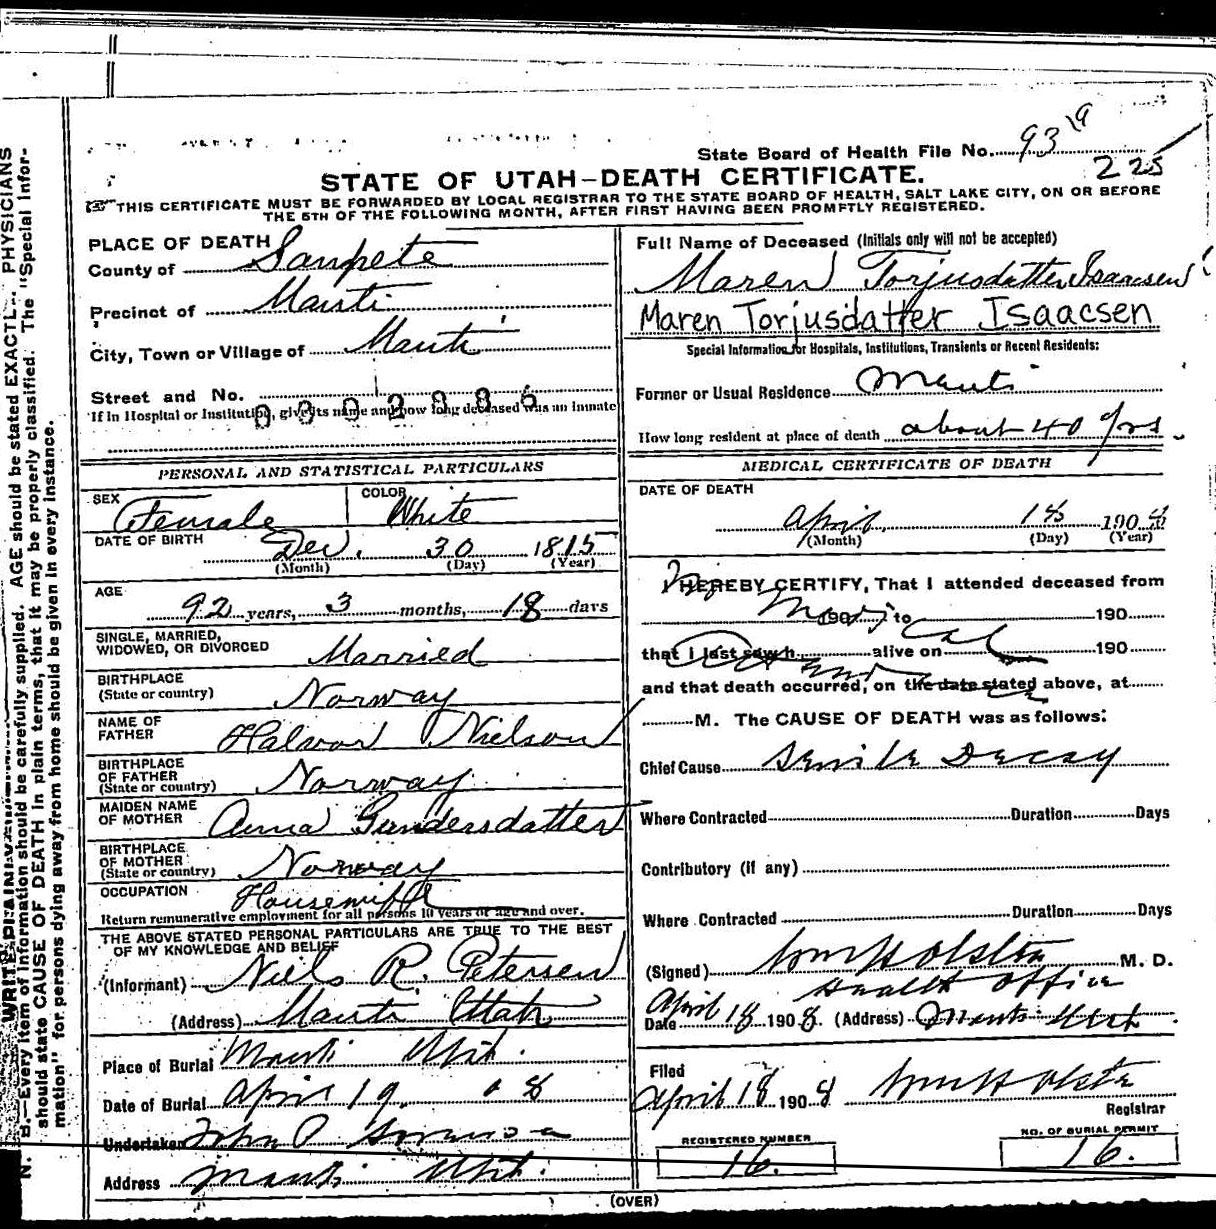 State Board of Health File No. 93 19
225
STATE OF UTAH—DEATH CERTIFICATE.
THIS CERTIFICATE MUST BE FORWARDED BY LOCAL REGISTRAR TO THE STATE BOARD OF HEALTH, SALT LAKE CITY, ON OR BEFORE
THE 5TH OF THE FOLLOWING MONTH, AFTER FIRST HAVING BEEN PROMPTLY REGISTERED.
PLACE OF DEATH
County of Sanpete
Precinct of Manti
City, Town or Village of Manti
Street and No.
If in Hospital or Institution, give its name and how long deceased was an inmate
PERSONAL AND STATISTICAL PARTICULARS
SEX Female COLOR White
DATE OF BIRTH Dec. 30 1815
(Month) (Day) (Year)
AGE
92 years, 3 months, 18 days
SINGLE, MARRIED,
WIDOWED, OR DIVORCED Married
BIRTHPLACE
(State or country) Norway
NAME OF
FATHER Halvor Nielson
BIRTHPLACE
OF FATHER
(State or country) Norway
MAIDEN NAME
OF MOTHER Anna Gundersdatter
BIRTHPLACE
OF MOTHER
(State or country) Norway
OCCUPATION Housewife
Return remunerative employment for all persons 10 years of age and over.
THE ABOVE STATED PERSONAL PARTICULARS ARE TRUE TO THE BEST
OF MY KNOWLEDGE AND BELIEF
(Informant) Niels R. Petersen
(Address) Manti Utah
Place of Burial Manti Utah.
Date of Burial April 19. 08
Undertaker John P
Address Manti Utah.
Full Name of Deceased (Initials only will not be accepted)
Maren Torjusdatter Isaacsen
Maren Torjusdatter Isaacsen
Special Information for Hospitals, Institutions, Transients or Recent Residents:
Former or Usual Residence Manti
How long resident at place of death about 40 yrs.
MEDICAL CERTIFICATE OF DEATH
DATE OF DEATH
April 18 1908
(Month) (Day) (Year)
I HEREBY CERTIFY, That I attended deceased from
190 to 190
that I last saw h alive on 190
and that death occurred, on the date stated above, at
M. The CAUSE OF DEATH was as follows:
Chief Cause Senile Decay
Where Contracted Duration Days
Contributory (if any)
Where Contracted Duration Days
(Signed) Wm H Olsten M. D.
Health Office
Date April 18 1908. (Address) Manti Utah.
Filed
April 18 1908 Wm H Olsten
Registrar
REGISTERED NUMBER
16.
NO. OF BURIAL PERMIT
16.
(OVER)
N. B.—Every item of information should be carefully supplied. AGE should be stated EXACTLY. PHYSICIANS
should state CAUSE OF DEATH in plain terms, that it may be properly classified. The "Special Infor-
mation" for persons dying away from home should be given in every instance.